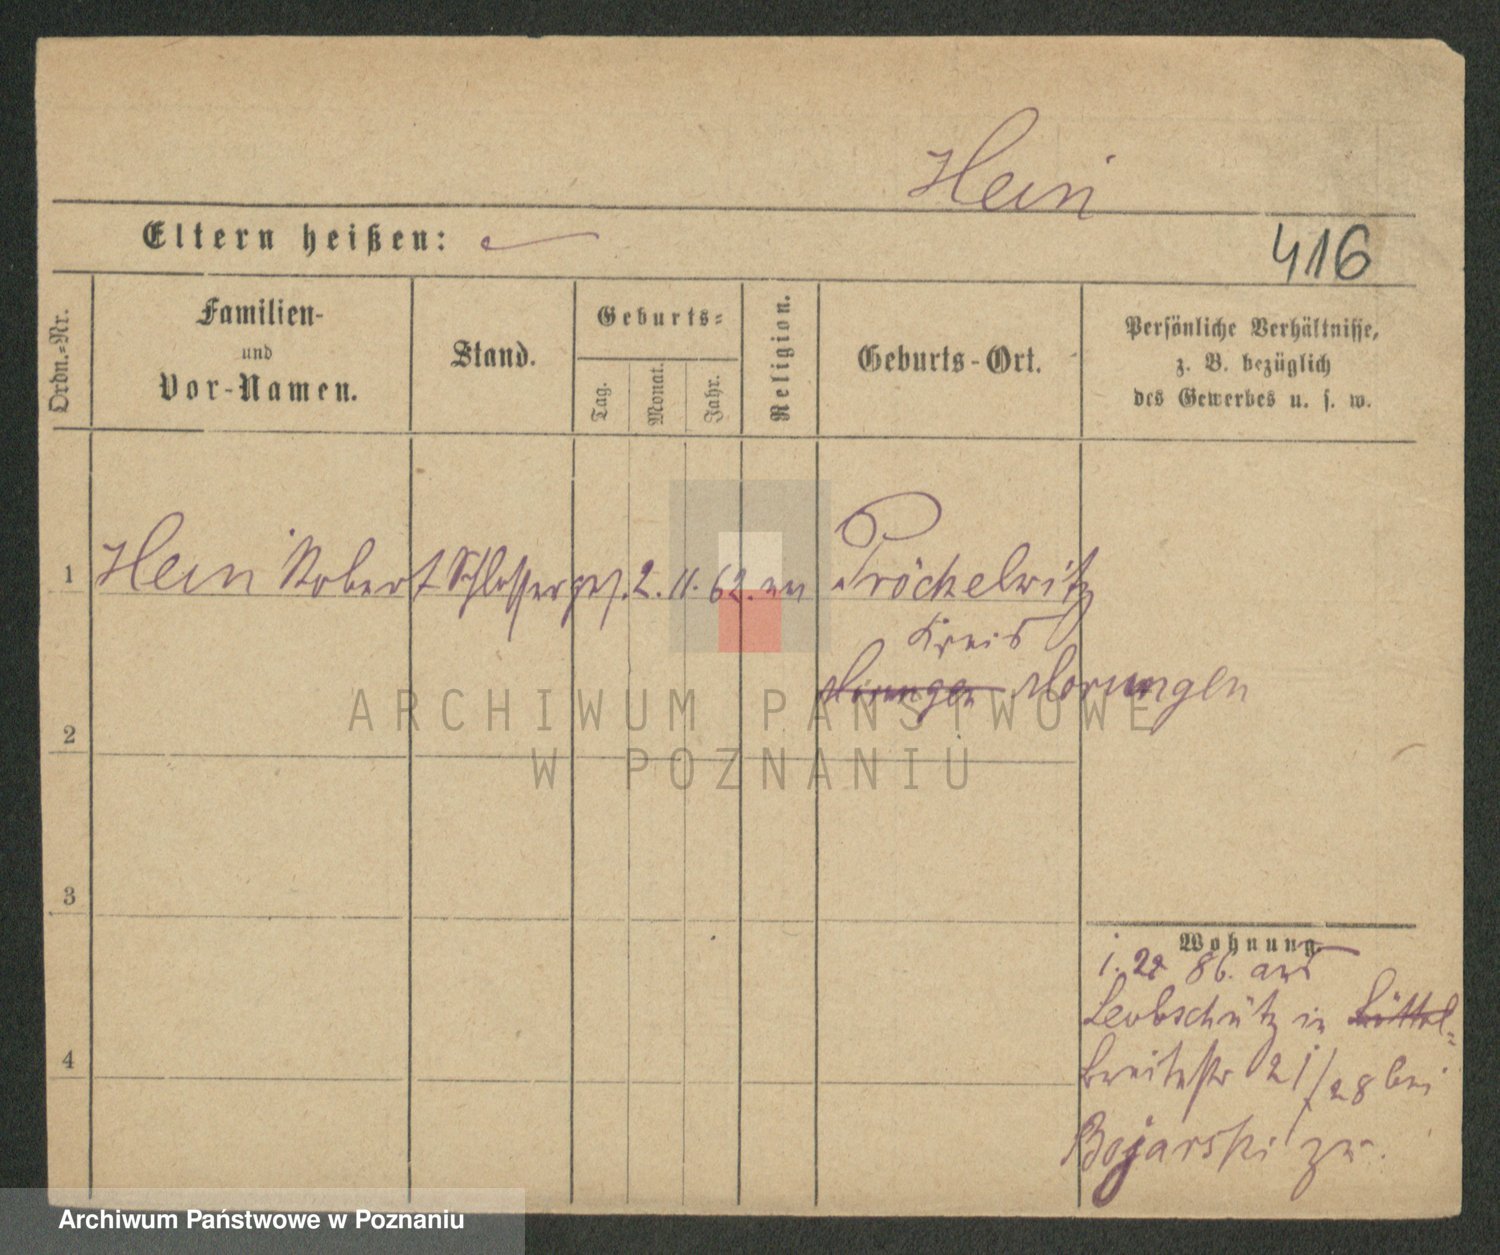 Hein
Eltern heißen:
416
Ordn.-Nr.
Familien-
und
Vor-Namen.
Stand.
Geburts-
Tag.
Monat.
Jahr.
Religion.
Geburts-Ort.
Persönliche Verhältnisse,
z. B. bezüglich
des Gewerbes u. s. w.
1 Hein Robert Schlosserges. 2. 11. 62. Pröckelwitz
Kreis
Morungen
2
3
4
Wohnung.
86. aus
Leobschütz in
Breitestr 21/28 bei
Bojarski zu.
ARCHIWUM PAŃSTWOWE
W POZNANIU
Archiwum Państwowe w Poznaniu